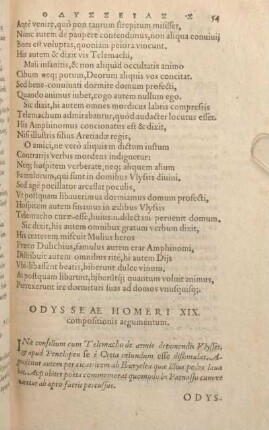 ΟΔΥΣΣΕΙΑΣ Σ 54
Antè venire, quò non tantum strepitum misisset,
Nunc autem de paupere contendimus, non aliqua conuiuij
Boni est voluptas, quoniam peiora vincunt.
His autem & dixit vis Telemachi,
Mali insanitis, & non aliquid occultatis animo
Cibum neq; potum, Deorum aliquis vos concitat.
Sed bene conuiuati dormite domum profecti,
Quando animus iubet, cogo autem nullum ego.
Sic dixit, hi autem omnes mordicus labris compressis
Telemachum admirabantur, quòd audacter locutus esset.
His Amphinomus concionatus est & dixit,
Nisi illustris filius Aretiadæ regis,
O amici, ne verò aliquis in dictum iustum
Contrarijs verbus mordens indignetur:
Neq; hospitem verberate, neq; aliquem alium
Famulorum, qui sunt in domibus Vlyssis diuini,
Sed age pocillator arcessat poculis,
Vt postquam libauerimus dormiamus domum profecti,
Hospitem autem sinamus in ædibus Vlyssis
Telemacho curæ esse, huius n. dilectam peruenit domum,
Sic dixit, his autem omnibus gratum verbum dixit,
His craterem miscuit Mulius heros
Præco Dulichius, famulus autem erat Amphinomi,
Distribuit autem omnibus rité, hi autem Dijs
Vbi libassent beatis, biberunt dulce vinum,
At postquam libarunt, biberūtq; quantum voluit animus,
Perrexerunt ire dormituri suas ad domos vnusquisq;.
ODYSSEAE HOMERI XIX.
compositionis argumentum.
INit consilium cum Telemacho de armis deponendis Vlysses,
& apud Penelopen se è Creta oriundum esse dissimulat. A-
gnoscitur autem per cicatricem ab Euryclea quæ illius pedes laua
bat. Atq; obiter poeta commemorat quomodo in Parnasso cum ve-
naretur ab apro fuerit percussus.
ODYS-